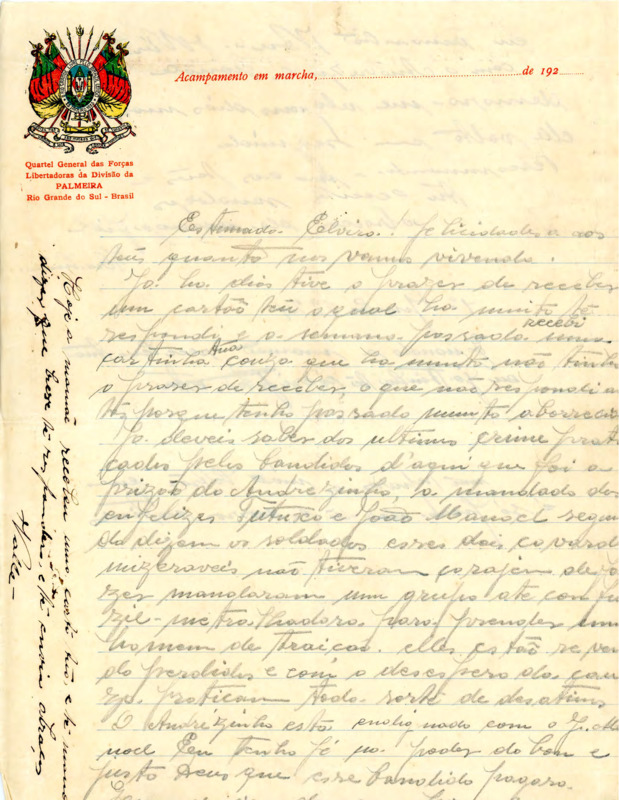 Acampamento em marcha, de 192
Quartel General das Forças
Libertadoras da Divisão da
PALMEIRA
Rio Grande do Sul - Brasil
Estimado Elviro. Felicidades a aos
teus quanto nos vamos vivendo.
Ja ha dias tive o prazer de receber
um cartão teu o qual ha muito te
respondi e a semana passada recebi uma
cartinha tua couza que ha muito não tinha
o prazer de receber, o que não respondi a
tés porque tenho passado muito aborrecid
Ja deveis saber dos ultimos crime prati
cados pelos bandidos d'aqui que foi a
prizão do Andrezinho, a mandado dos
infelizes e João Manoel segun
do dizem os soldados esses dois covard
mizeraveis não tiveram corajem de fa
zer mandaram um grupo ate com fu
zil-metralhadora para prender um
homem de traição. elles estão se ven
do perdidos e com o desespero da cau
za praticam toda sorte de desatinos
O Andrezinho está endignado com o J. Ma
noel Eu tenho fé no poder do bom e
justo Deus que esse bandido pagara.
Hoje a mamãe recebeu uma carta tua e te manda
dizer que breve te responderá e te envia abraços